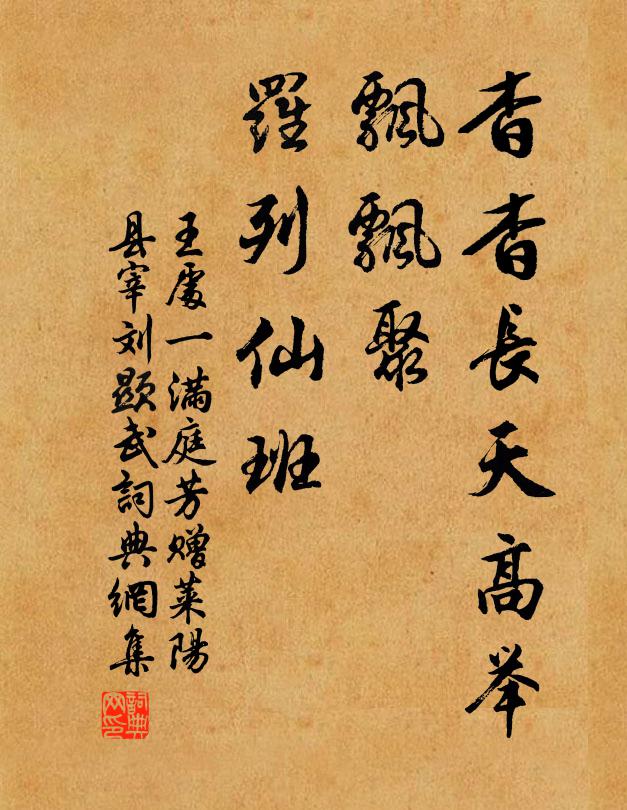 杳杳長天高举
飄飄聚
羅列仙班
王處一满庭芳赠莱陽
县宰刘顯武詞典網集
詞典
网印